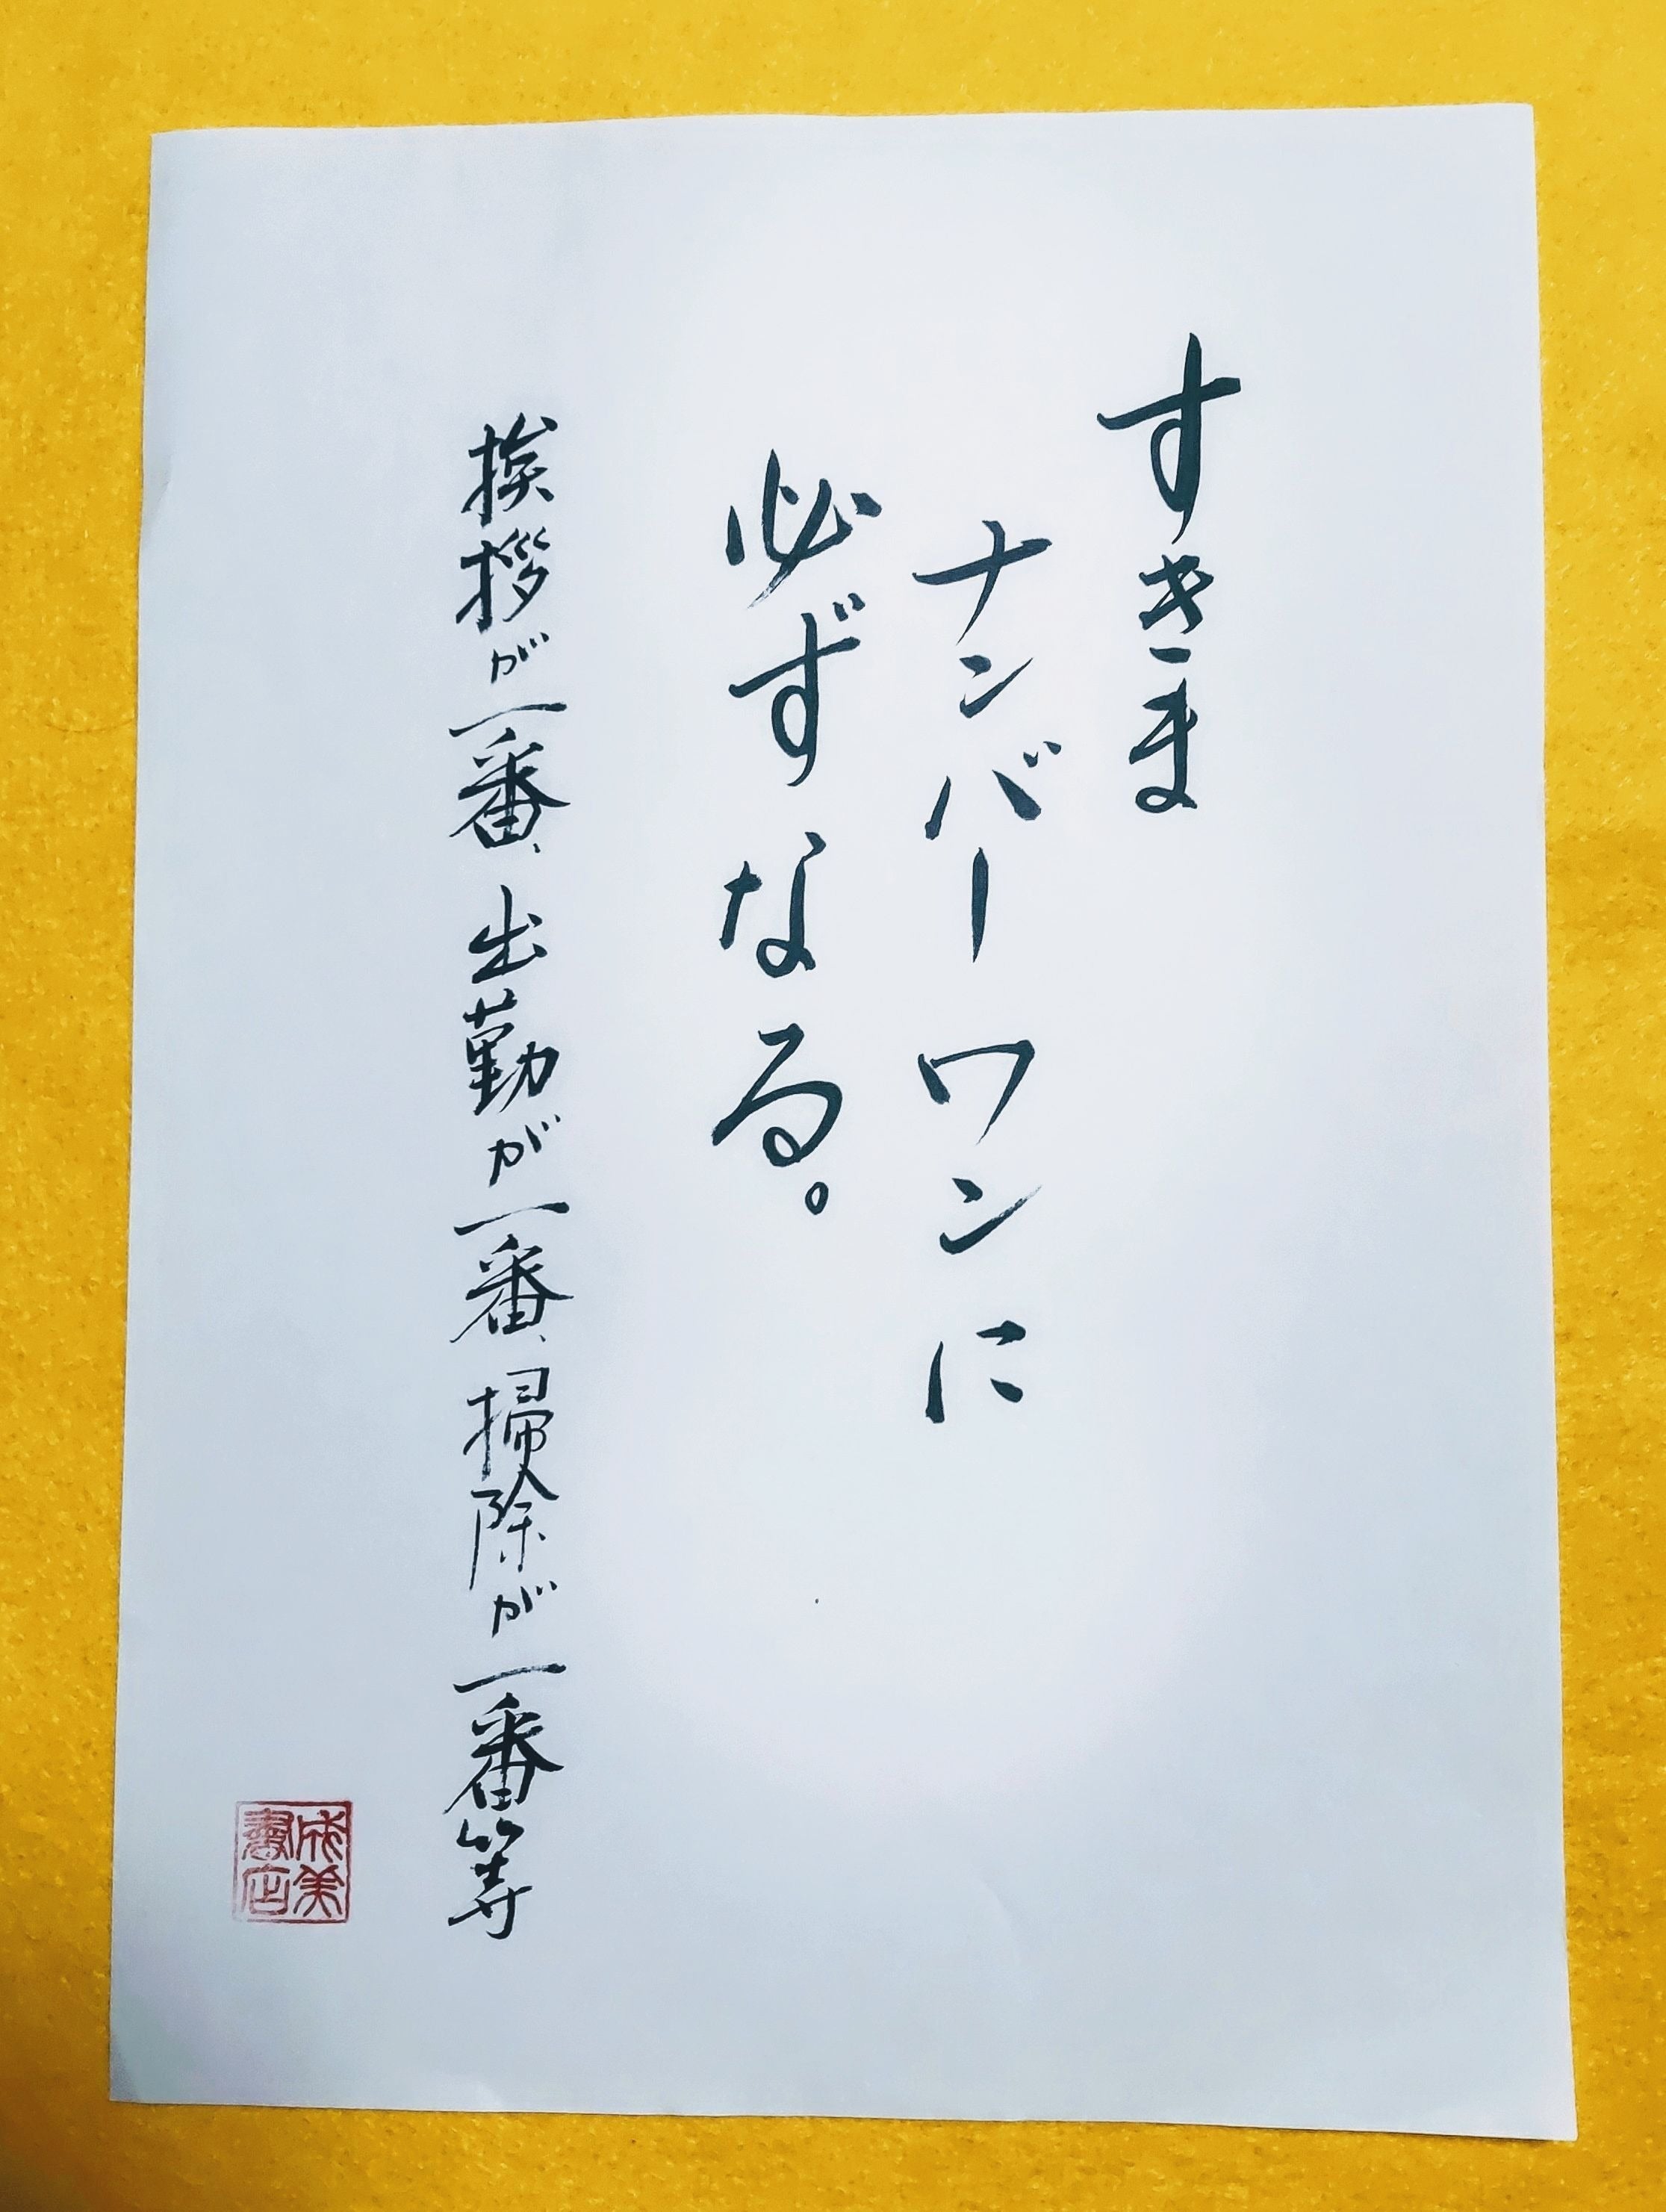 すきま
ナンバーワンに
必ずなる。
挨拶が一番、出勤が一番、掃除が一番等
成美
書店